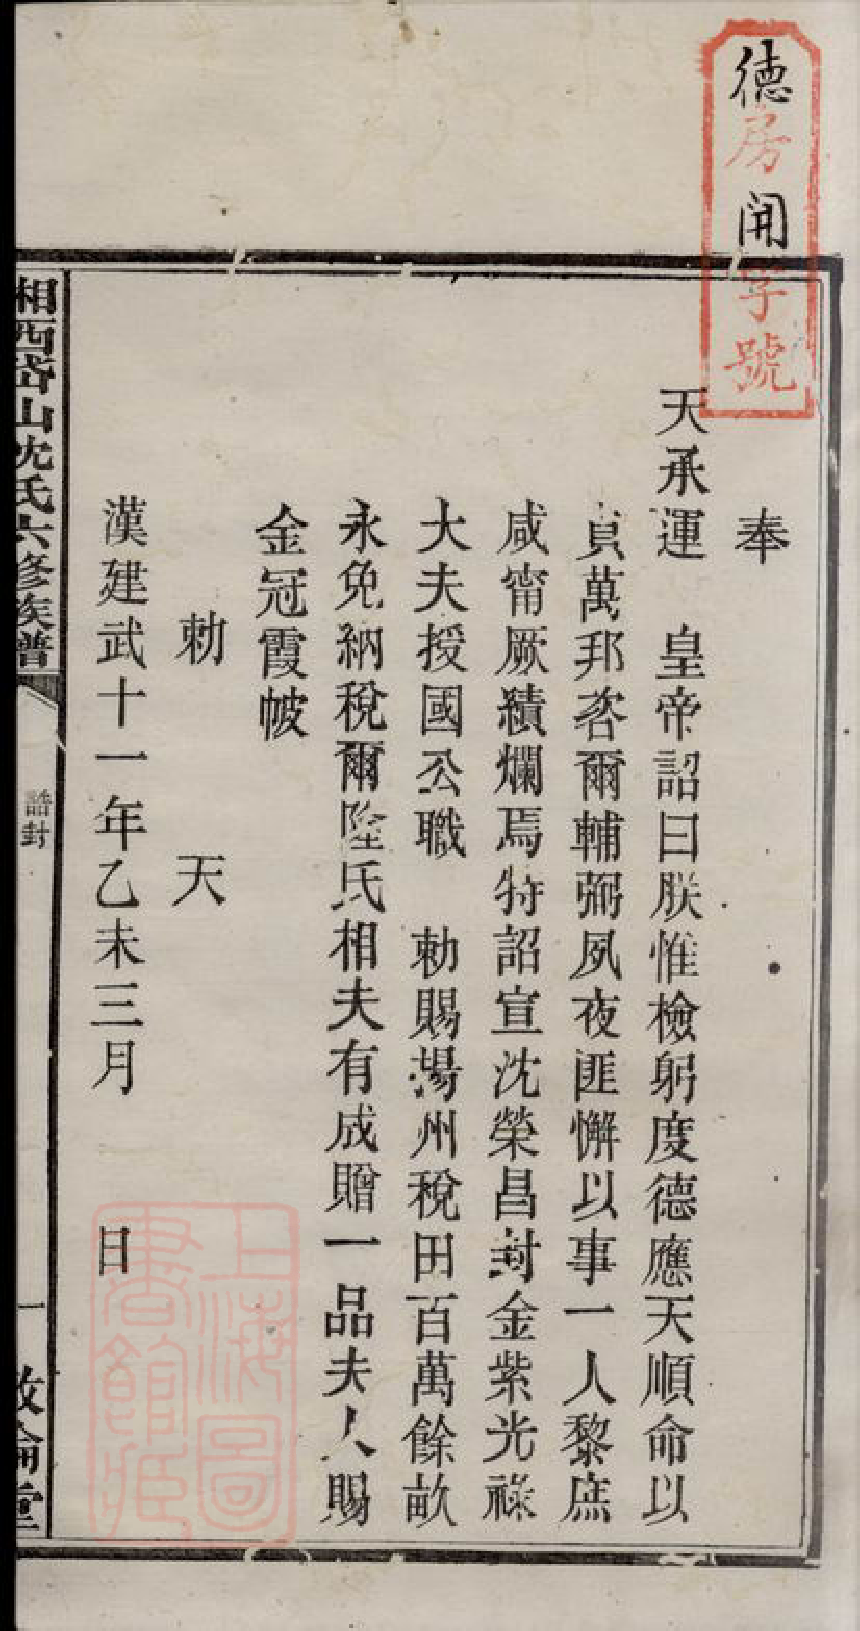 德房開字號
奉
天承運　皇帝詔曰朕惟檢躬度德應天順命以
貞萬邦咨爾輔弼夙夜匪懈以事一人黎庶
咸甯厥績爛焉特詔宣沈榮昌封金紫光祿
大夫授國公職　勅賜揚州稅田百萬餘畝
永免納稅爾陸氏相夫有成贈一品夫人賜
金冠霞帔
勅　天
漢建武十一年乙未三月　日
上海圖書館藏
湘西岱山沈氏六修族譜　誥封　一　敦倫堂